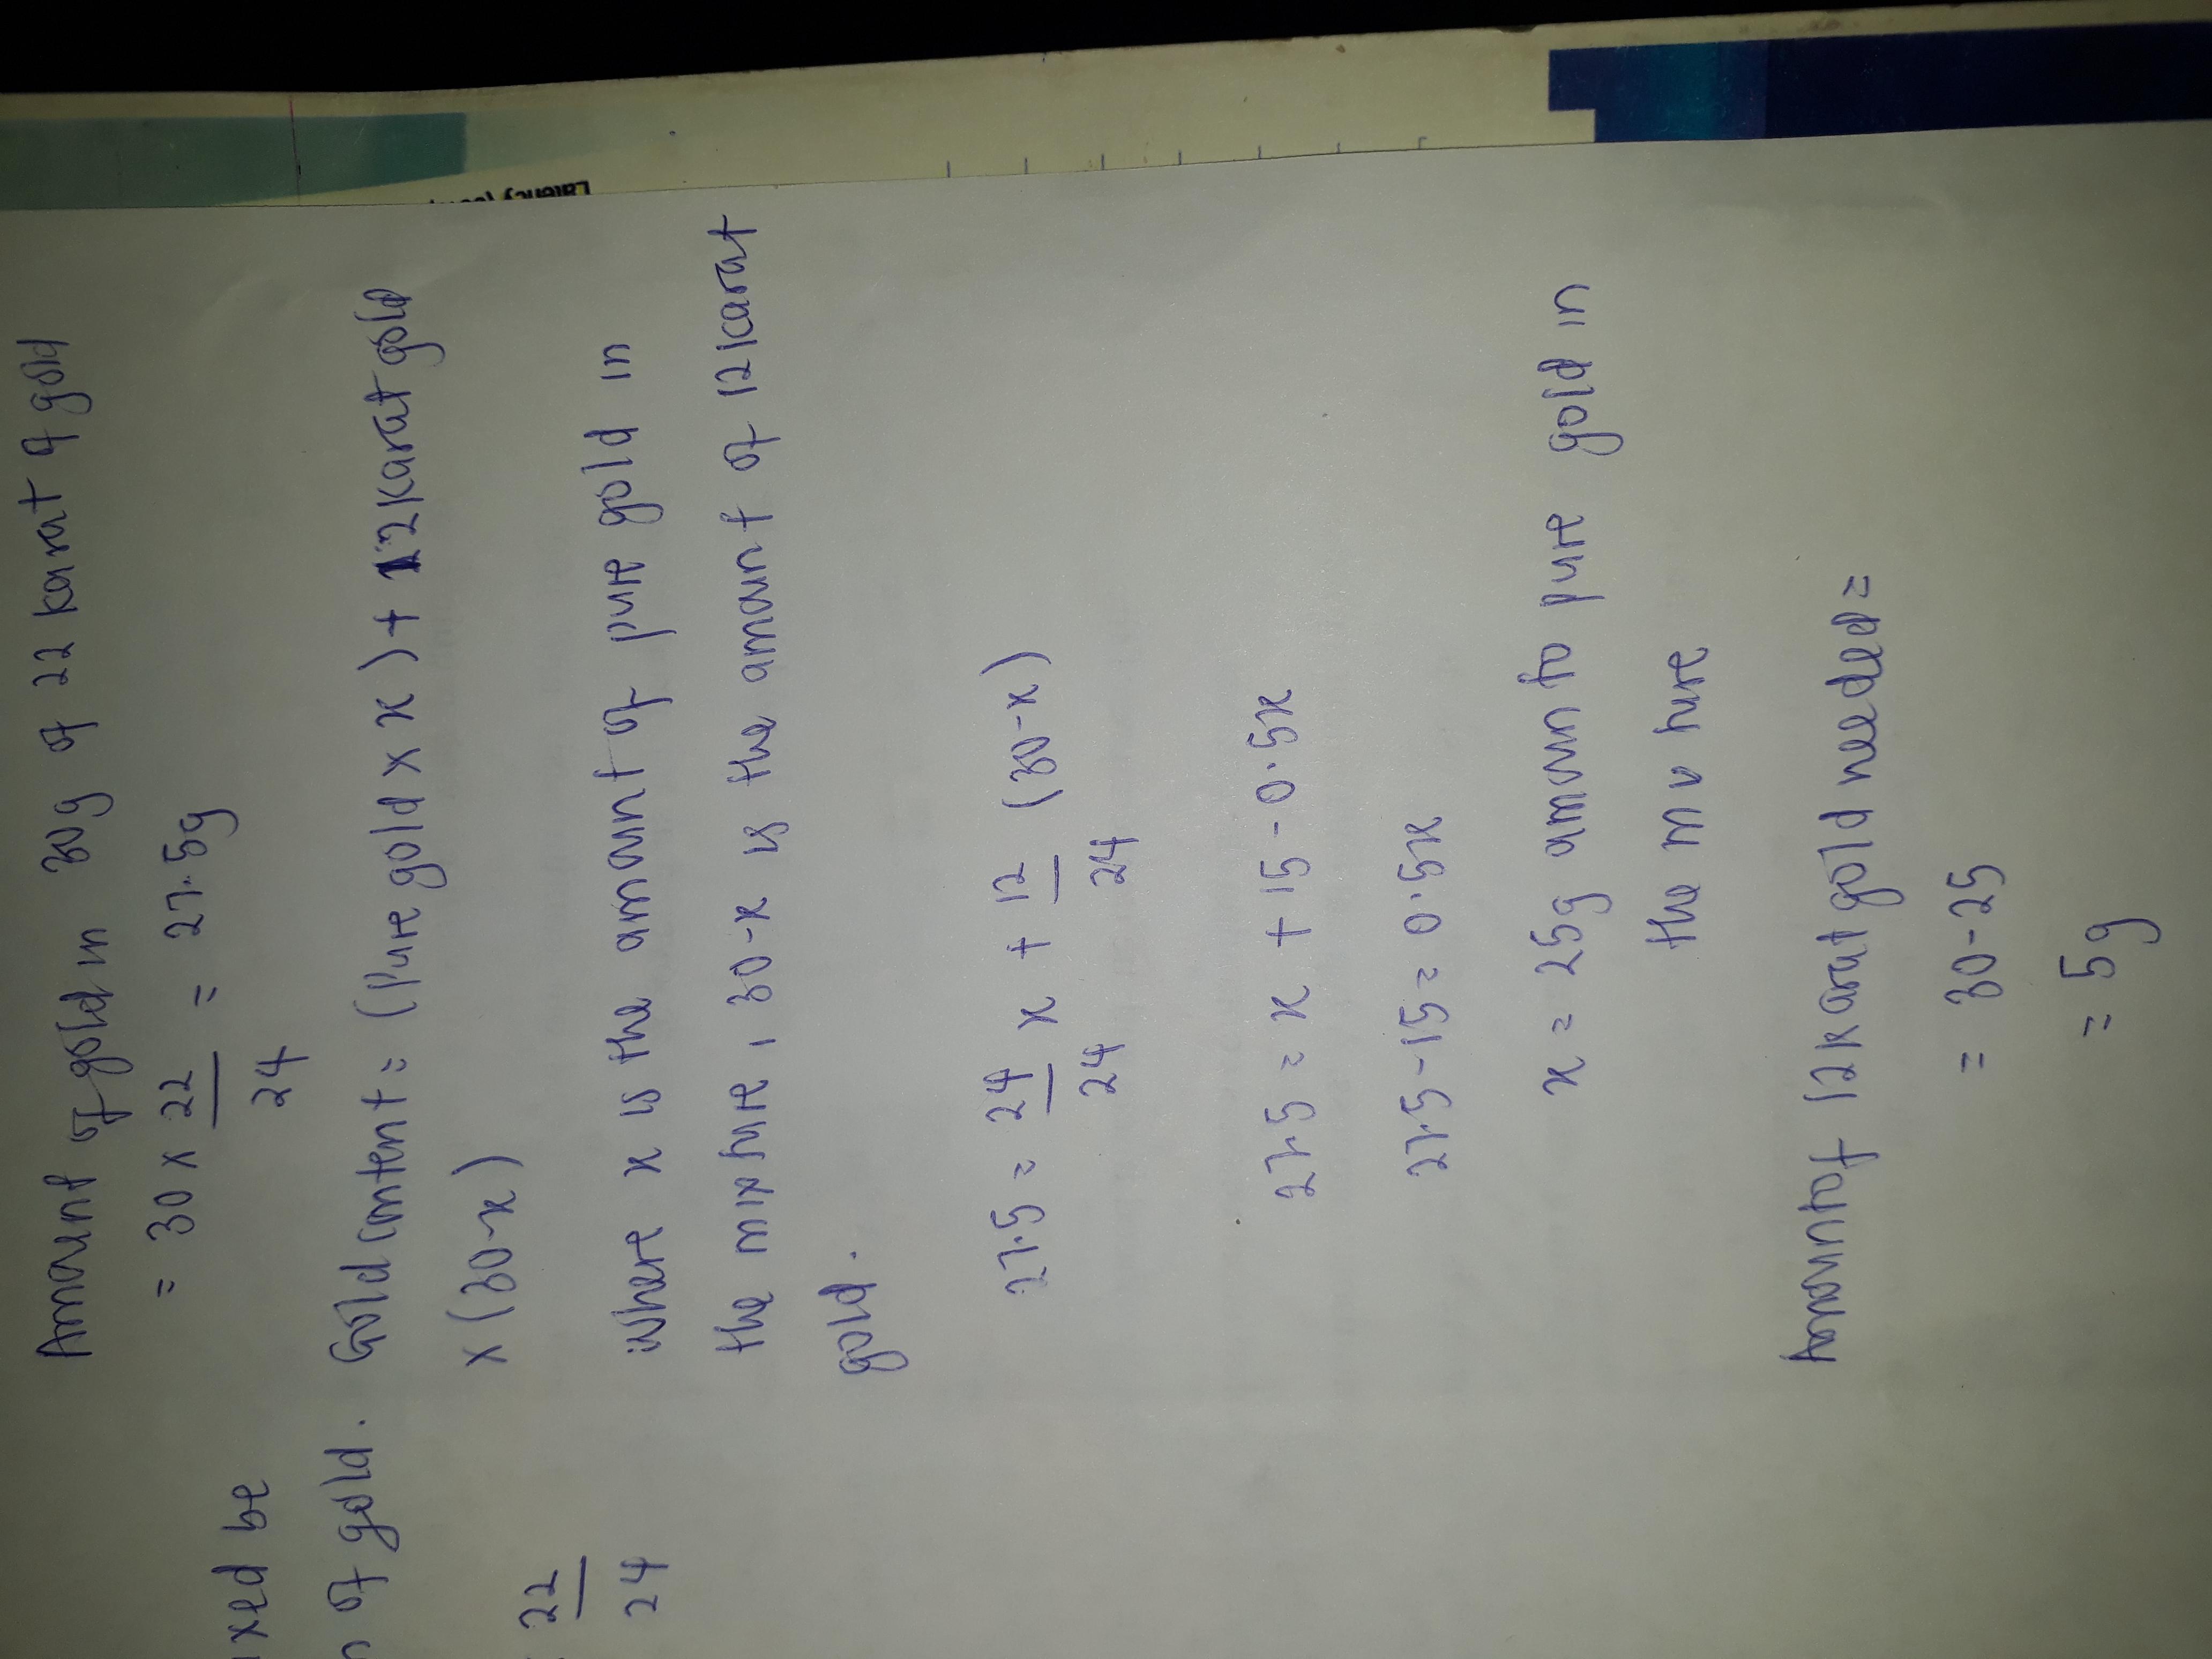 Amount of gold in 30g of 22 karat of gold
= 30 x 22/24 = 27.5g
Gold content = (Pure gold x x) + 12 karat gold
x (30-x)
where x is the amount of pure gold in
the mixture, 30-x is the amount of 12 karat
gold.
27.5 = 24/24 x + 12/24 (30-x)
27.5 = x + 15 - 0.5x
27.5 - 15 = 0.5x
x = 25g amount to pure gold in
the mixture
Amount of 12 karat gold needed =
= 30 - 25
= 5g
xed be
of gold.
22/24
Latency